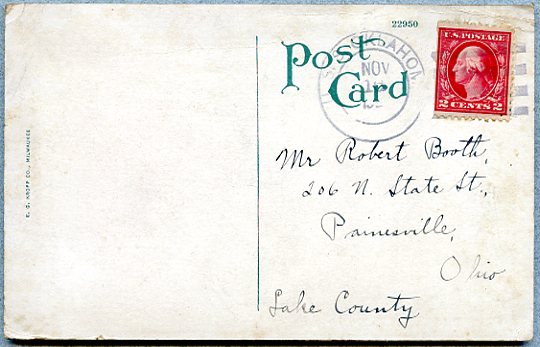 22950
Post
Card
OKLAHOM
NOV
U.S. POSTAGE
2 CENTS 2
E. C. KROPP CO., MILWAUKEE
Mr Robert Booth,
206 N. State St.,
Painesville,
Ohio
Lake County